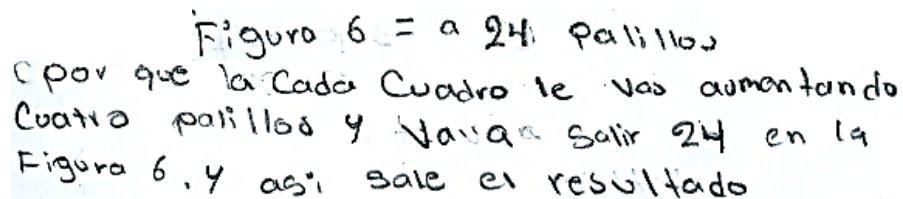 Figura 6 = a 24 palillos
(por que la Cada Cuadro le vas aumentando
Cuatro palillos y Van a Salir 24 en la
Figura 6, y asi sale el resultado